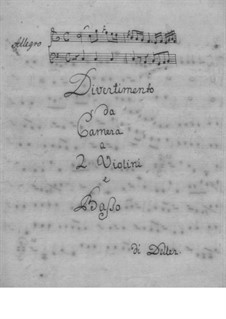 Allegro
Divertimento
da
Camera
a
2 Violini
e
Basso
Di Deller